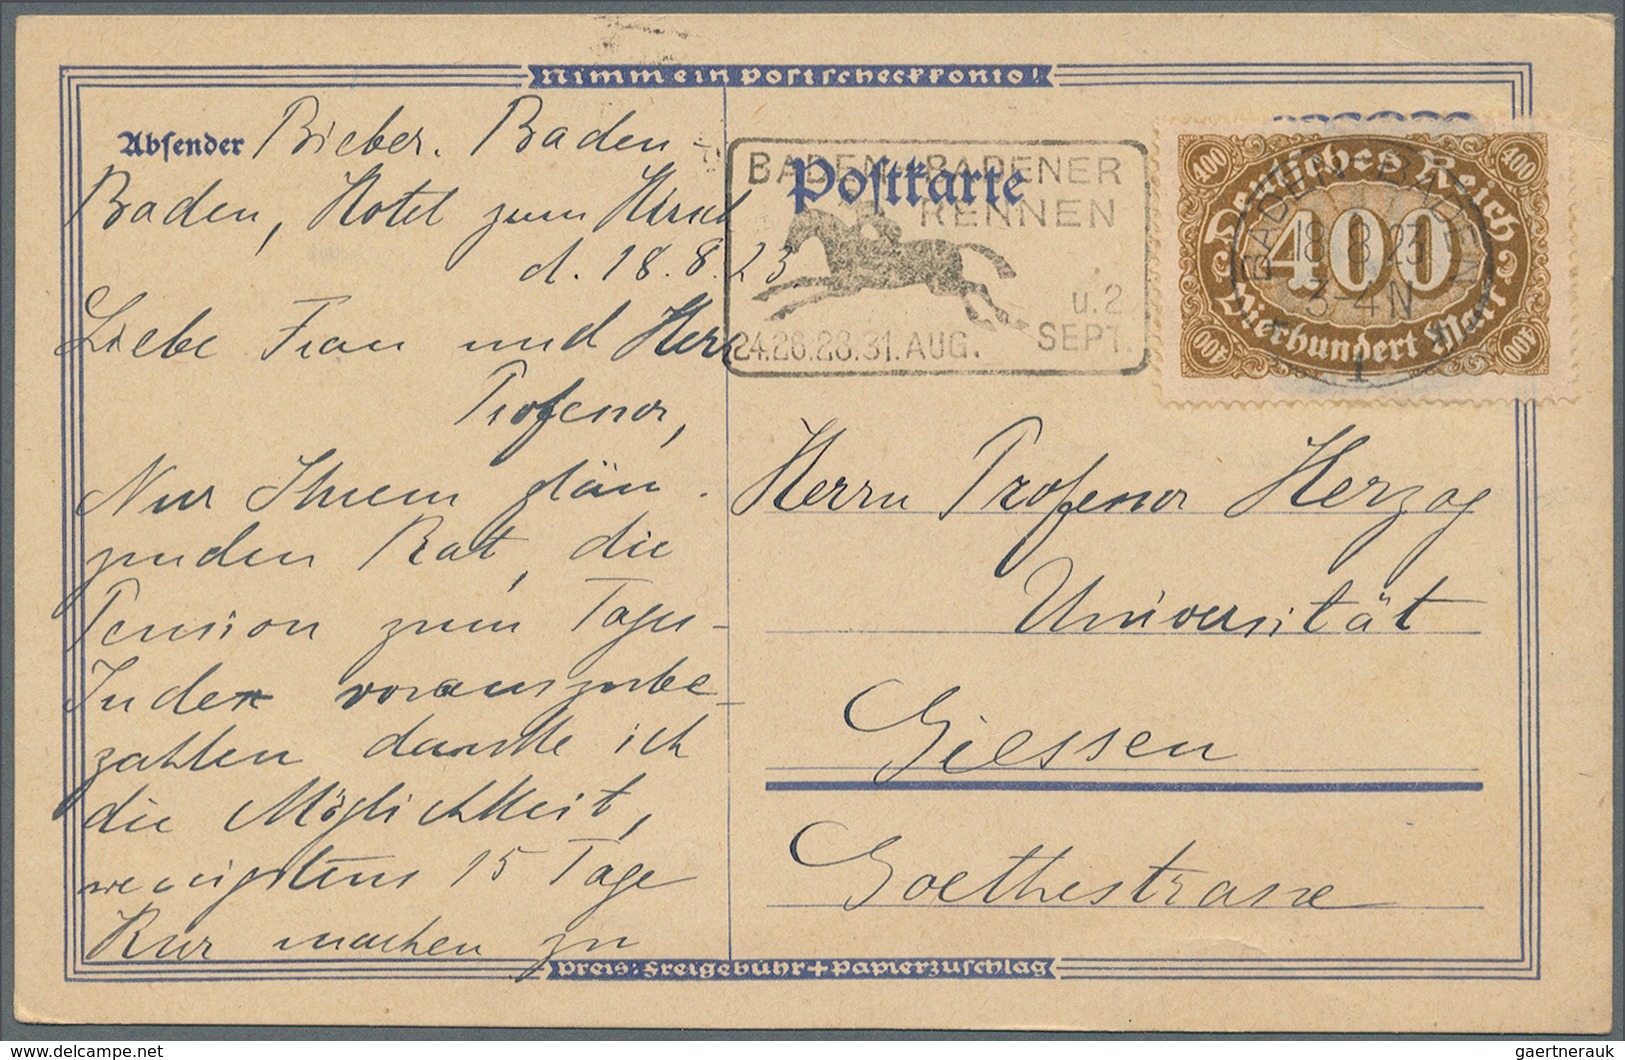 Nimm ein Postscheckkonto!
Absender Bieber. Baden-
Baden, Hotel zum Hirsch
d. 18.8.23
Liebe Frau und Herr
Professor,
Nur Ihrem glän-
zenden Rat, die
Pension zum Tages-
Index vorauszube-
zahlen danke ich
die Möglichkeit,
wenigstens 15 Tage
Kur machen zu
Postkarte
BADEN-BADENER
RENNEN
u. 2
24.26.28.31. AUG. SEPT.
Deutsches Reich
400 400
400
Vierhundert Mark
400 400
BADEN-BADEN
18 8 23
3-4 N
1
Herrn Professor Herzog
Universität
Giessen
Goethestrasse
Preis: Freigebühr + Papierzuschlag
www.delcampe.net
gaertnerauk